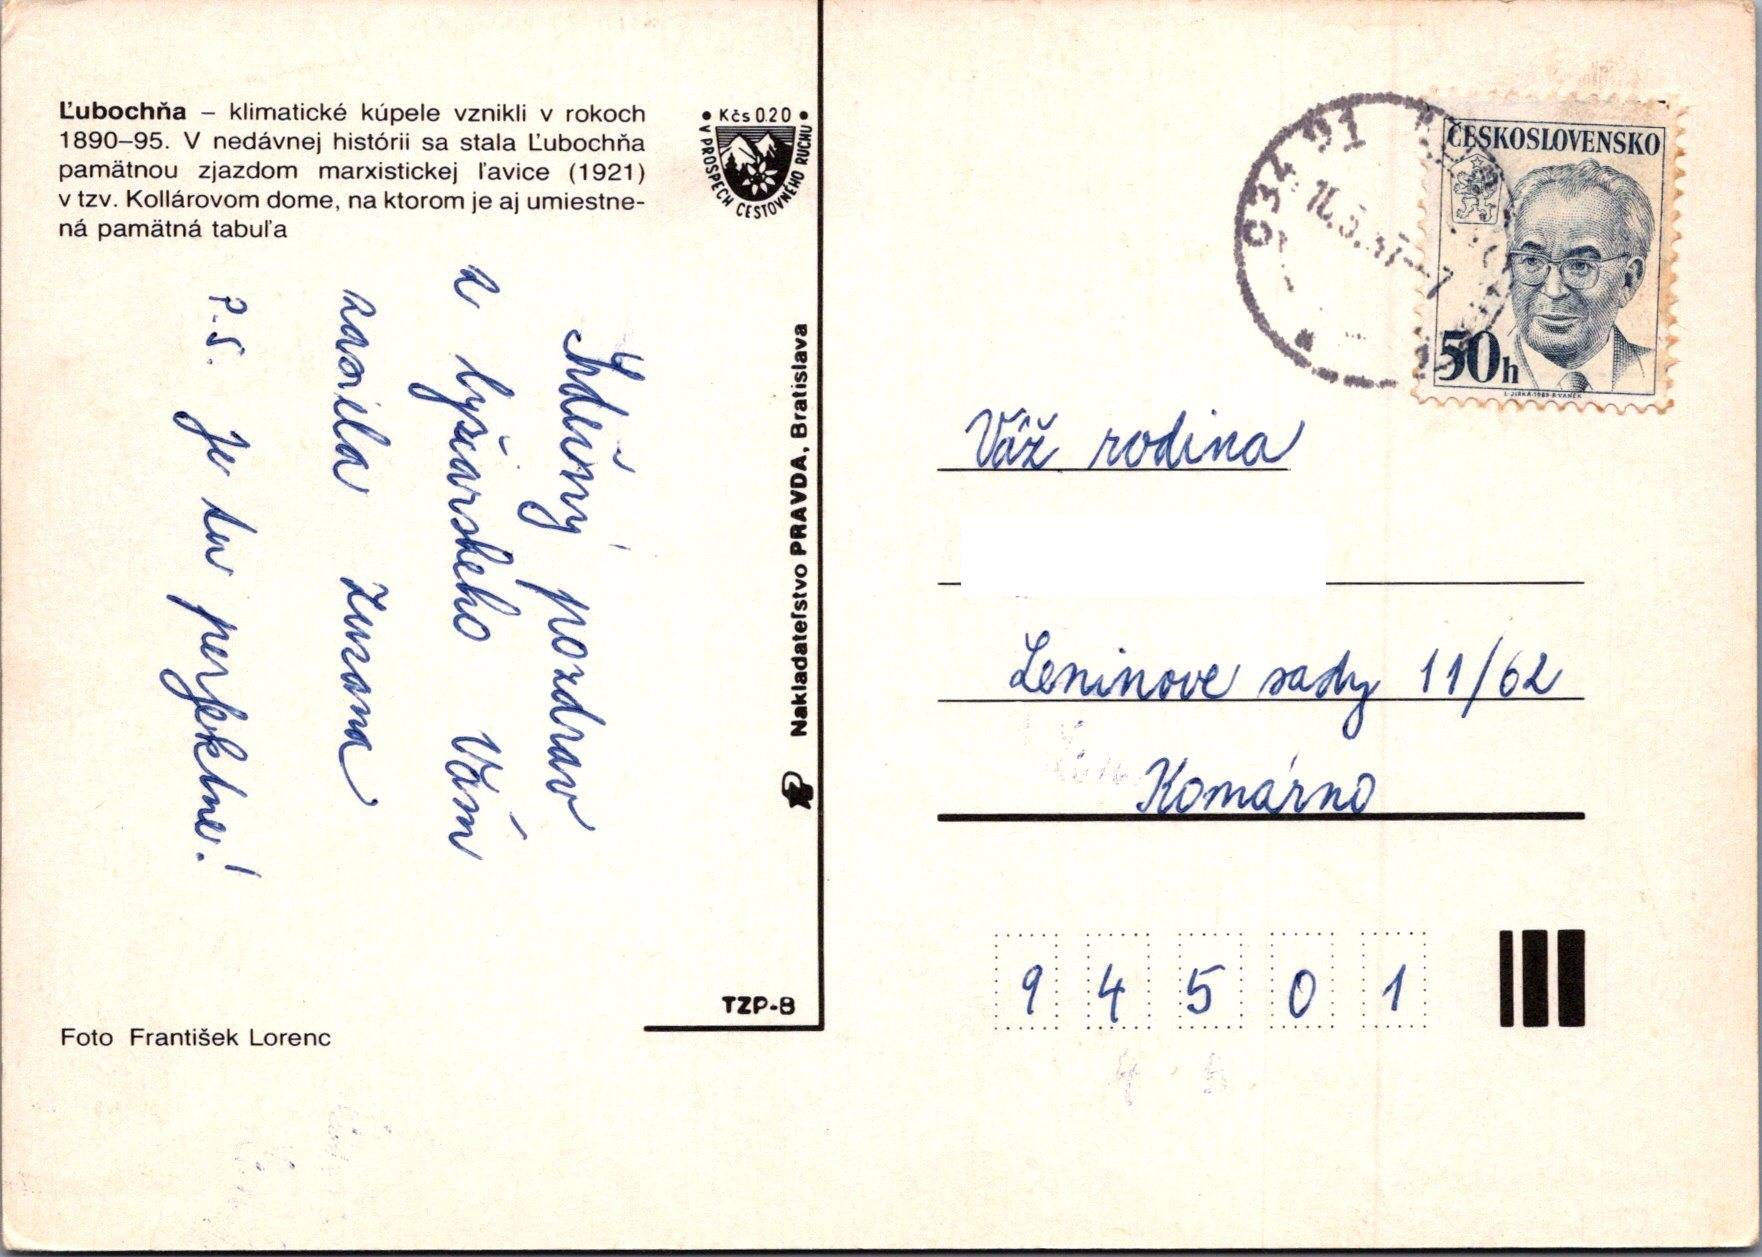 Ľubochňa – klimatické kúpele vznikli v rokoch
1890–95. V nedávnej histórii sa stala Ľubochňa
pamätnou zjazdom marxistickej ľavice (1921)
v tzv. Kollárovom dome, na ktorom je aj umiestne-
ná pamätná tabuľa
• Kčs 0.20 •
V PROSPECH CESTOVNÉHO RUCHU
Srdečný pozdrav
z lyžiarskeho Vám
zasiela Zuzana
P.S. Je tu perfektne!
Nakladateľstvo PRAVDA, Bratislava
TZP-8
Foto František Lorenc
034 91
ČESKOSLOVENSKO
50h
L. JIRKA-1983-B. VANĚK
Váž rodina
Leninove sady 11/62
Komárno
94501